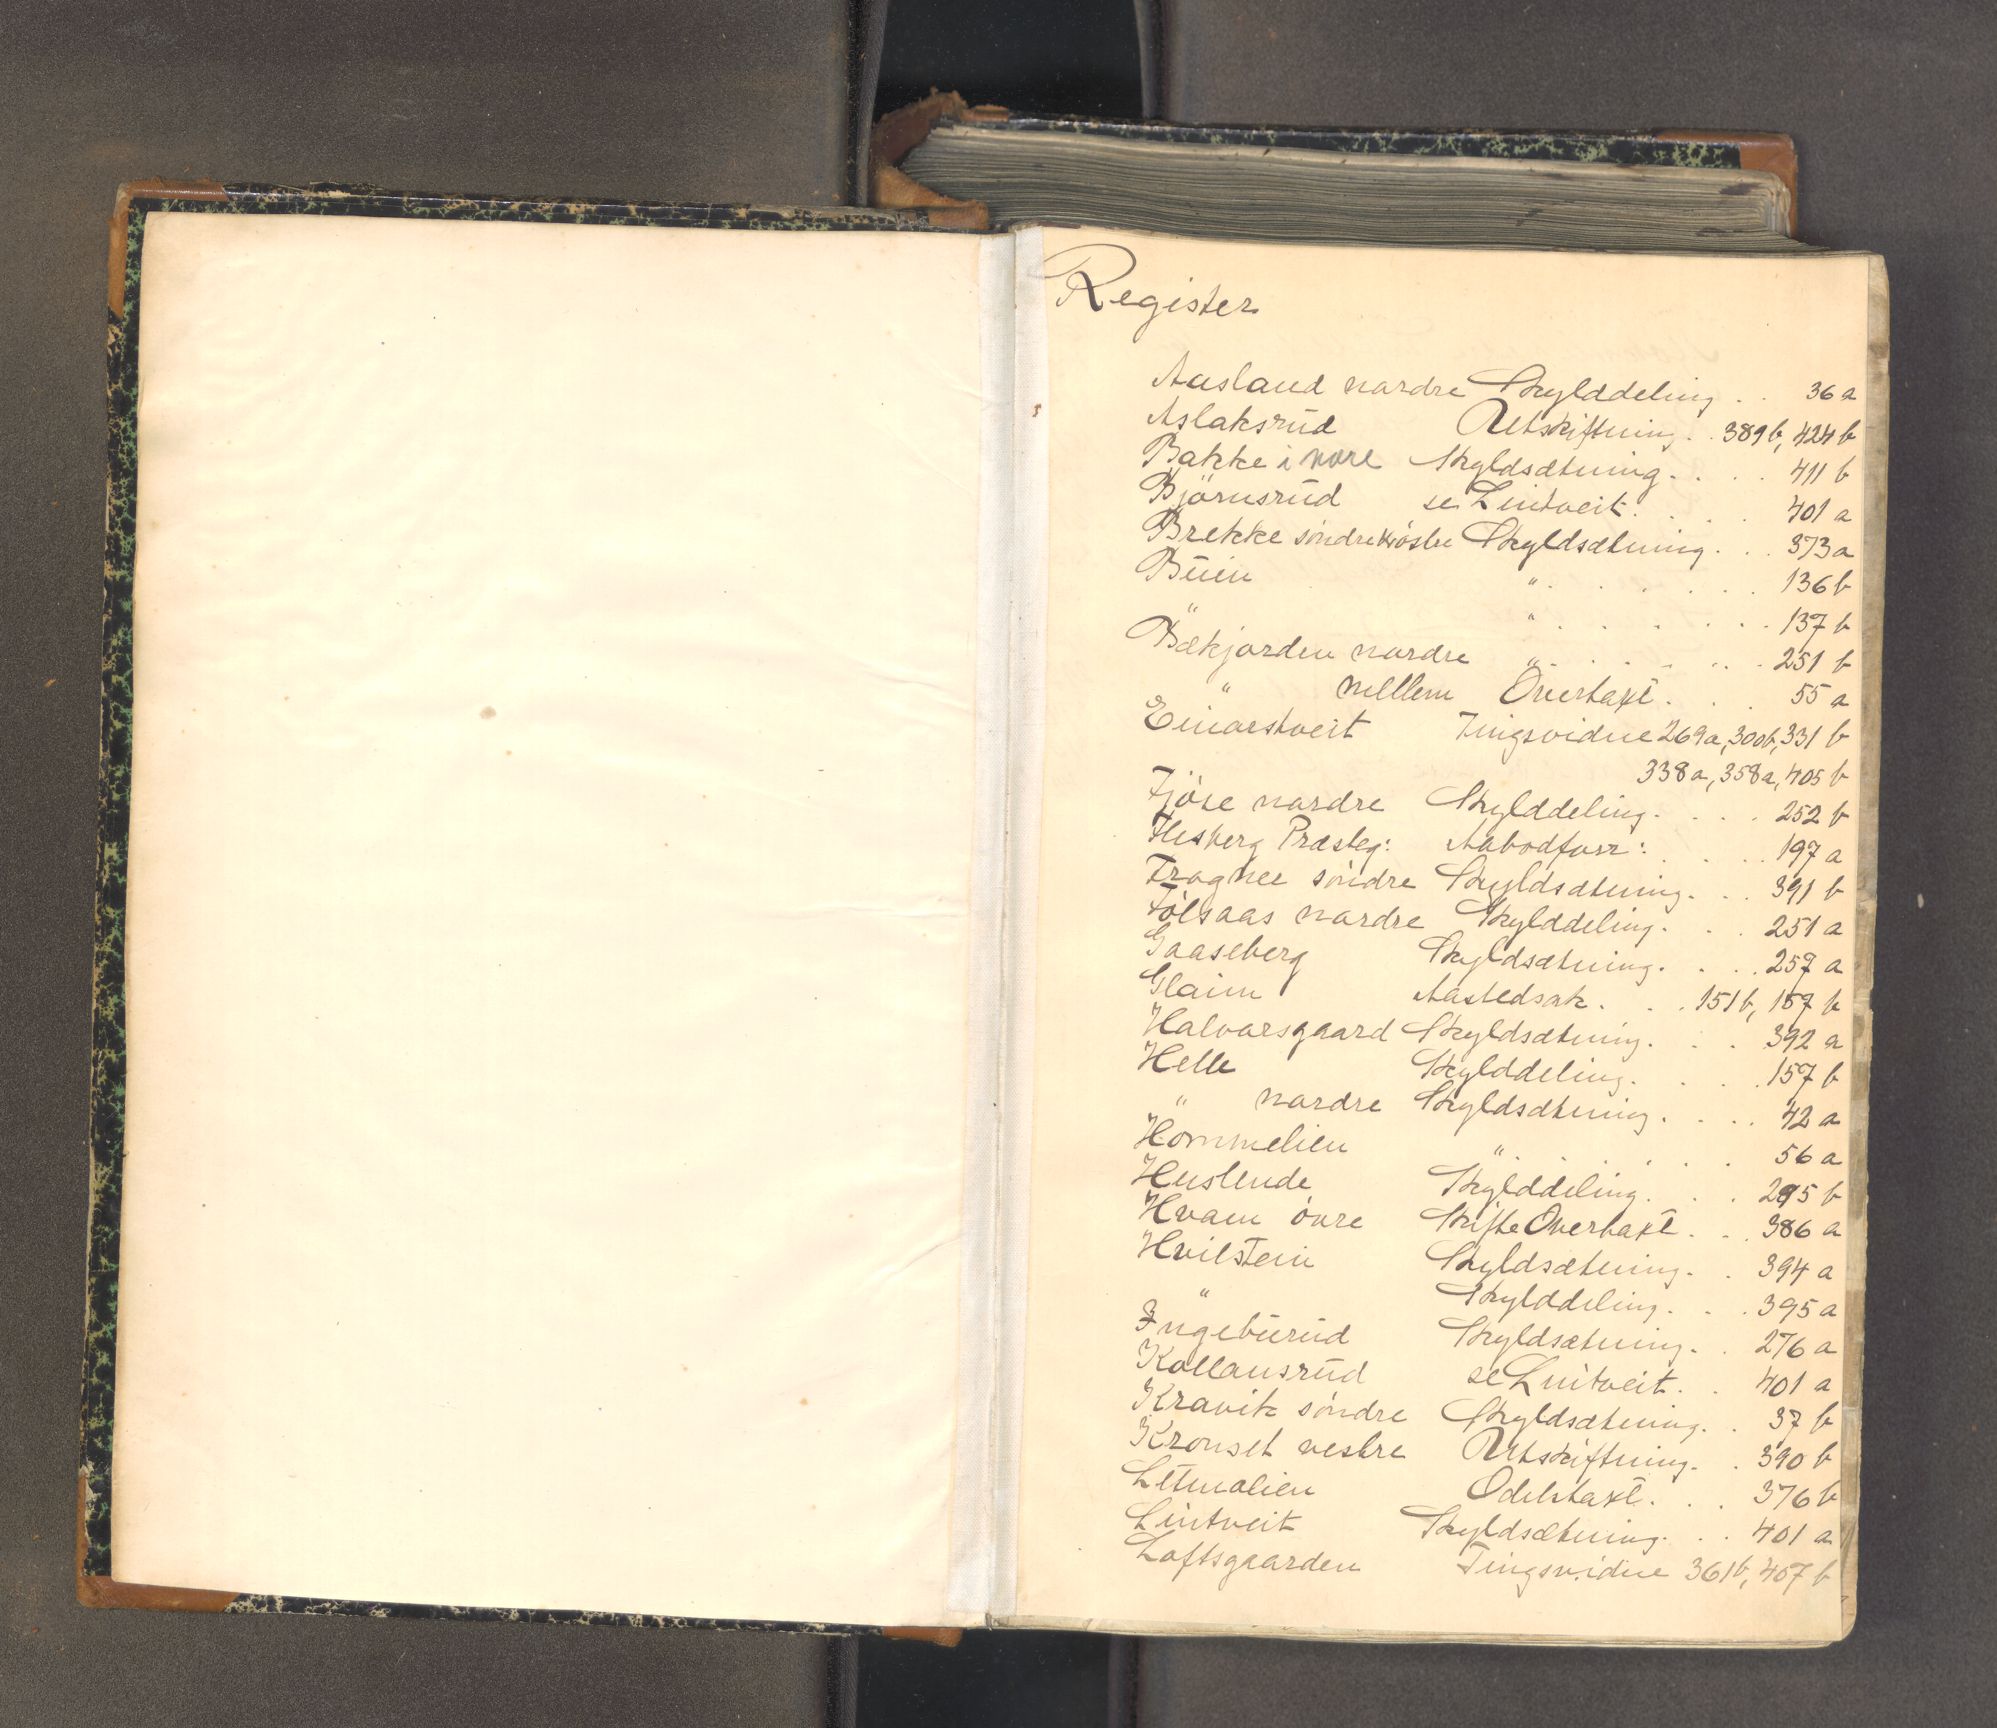 Register
Aasland nordre Skylddeling . . 36 a
Aslaksrud Utskiftning . . 389 b, 424 b
Bakke i Nore Skyldsætning . . . . 411 b
Björnsrud se Lintveit . . . . 401 a
Brekke söndre Skyldsætning . . . 373 a
Buin " . . . . . . 136 b
" " . . . . . . 137 b
Bækjorden nordre " . . . . . . 251 b
" mellem Overtaxt . . . 55 a
Einarstveit Tingsvidne 269 a, 300 b, 331 b
338 a, 358 a, 405 b
Fjöse nordre Skylddeling . . . . 252 b
Flesberg Præsteg: Aabodforr: . . . . 197 a
Frognee söndre Skyldsætning . . . 391 b
Fölsaas nordre Skylddeling . . . 251 a
Gaaseberg Skyldsætning . . . . 257 a
Glaim Aastedsak . . . 151 b, 157 b
Halvorsgaard Skyldsætning . . . 392 a
Helle Skylddeling . . . . 157 b
" nordre Skyldsætning . . . . 42 a
Hommelien " . . . . . . 56 a
Huslende Skylddeling . . . 295 b
Hvam övre Skifte Overtaxt . . . 386 a
Hvilstein Skyldsætning . . 394 a
" Skylddeling . . . 395 a
Ingeburud Skyldsætning . . 276 a
Kollansrud se Lintveit . . 401 a
Kravik söndre Skyldsætning . . 37 b
Kronset vestre Utskiftning . . 390 b
Letmolien Odelstaxt . . . 376 b
Lintveit Skyldsætning . . . 401 a
Loftsgaarden Tingsvidne 361 b, 407 b